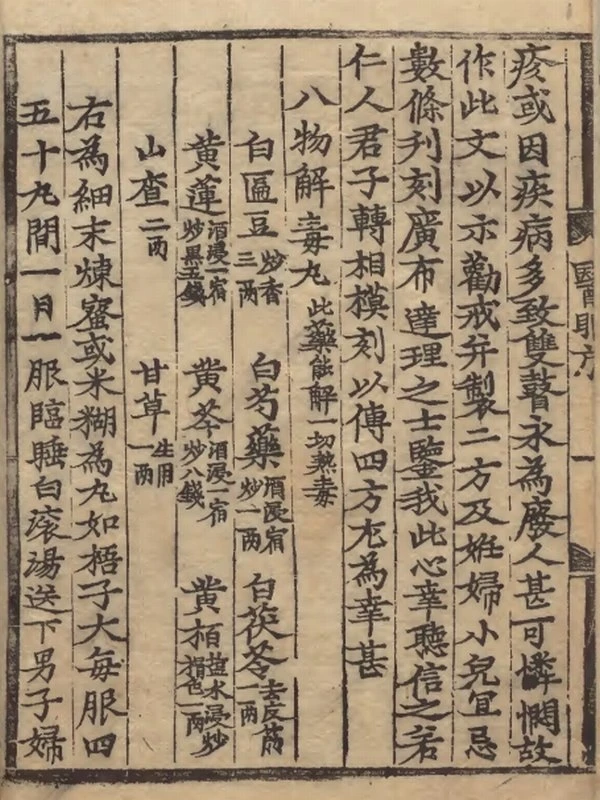 疹或因疾病多致雙瞽永為廢人甚可憐憫故
作此文以示勸戒并製二方及姙婦小兒宜忌
數條刋刻廣布達理之士鑒我此心幸聽信之若
仁人君子轉相模刻以傳四方尤為幸甚
八物解毒丸 此藥能解一切熱毒
白匾豆 炒香三兩 白芍藥 酒浸一宿炒一兩 白茯苓 去皮筋一兩
黃蓮 酒浸一宿炒黑五錢 黃芩 酒浸一宿炒八錢 黃栢 鹽水浸炒褐色一兩
山查 二兩 甘草 生用一兩
右為細末煉蜜或米糊為丸如梧子大每服四
五十丸間一日一服臨睡白滾湯送下男子婦
一